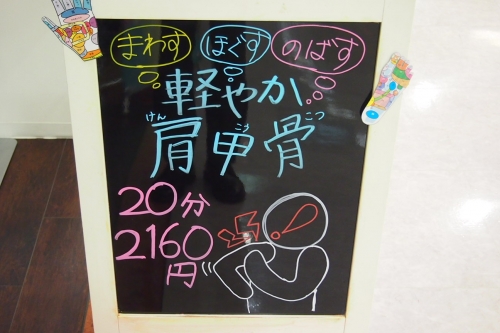 まわす ほぐす のばす
軽やか
けん こう こつ
肩甲骨
20分
2160
円